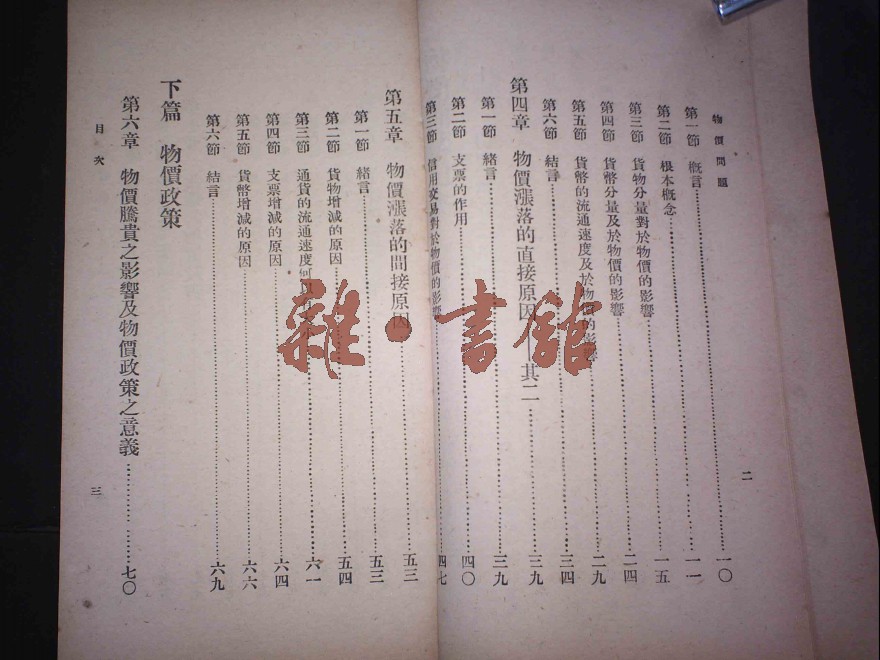 物價問題
二
第一節 概言……一〇
第二節 根本概念……一一
第三節 貨物分量對於物價的影響……一五
第四節 貨幣分量及於物價的影響……二四
第五節 貨幣的流通速度及於物價的影響……二九
第六節 結言……三四
第四章 物價漲落的直接原因——其二……三九
第一節 緒言……三九
第二節 支票的作用……四〇
第三節 信用交易對於物價的影響……四七
第五章 物價漲落的間接原因……五三
第一節 緒言……五三
第二節 貨物增減的原因……五四
第三節 通貨的流通速度何以……六一
第四節 支票增減的原因……六四
第五節 貨幣增減的原因……六六
第六節 結言……六九
下篇 物價政策
第六章 物價騰貴之影響及物價政策之意義……七〇
目次
三
雜·書館